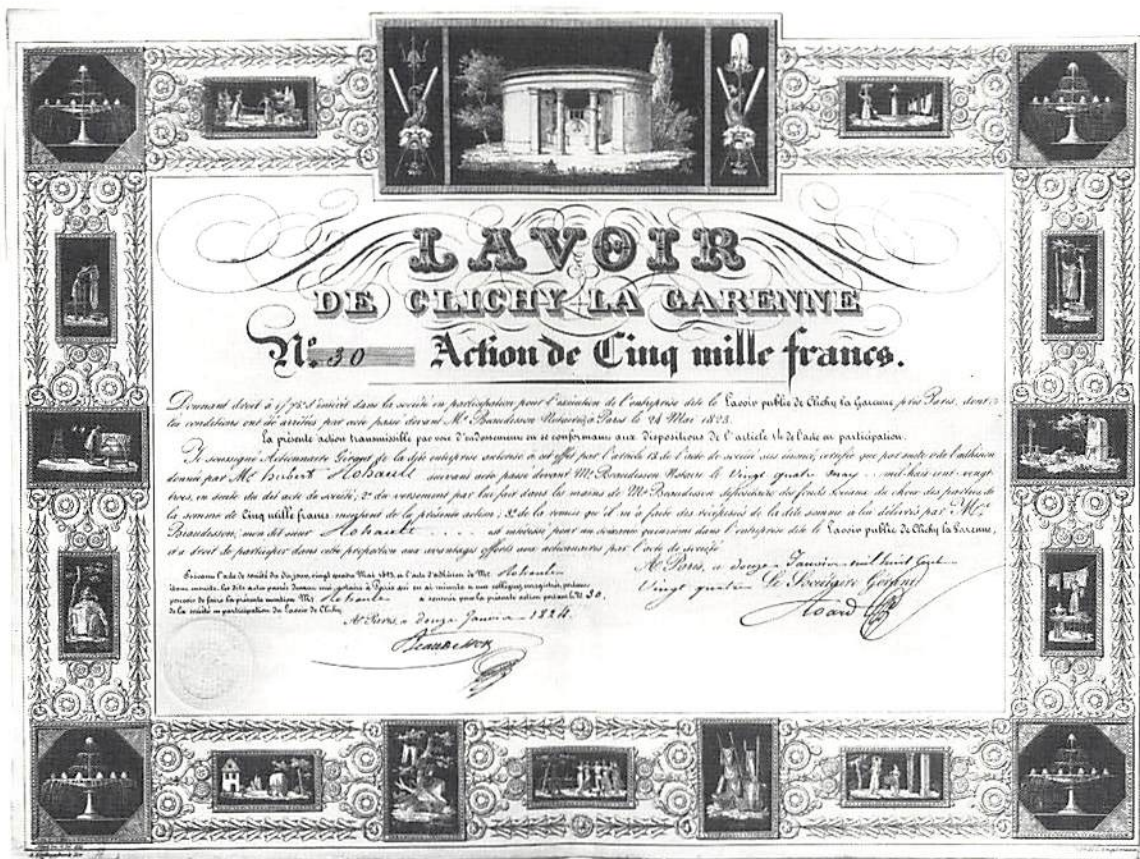 LAVOIR
DE CLICHY LA GARENNE
N.º 30 Action de Cinq mille francs.
Donnant droit à 1/75e d'intérêt dans la société en participation pour l'exécution de l'entreprise dite le Lavoir public de Clichy la Garenne près Paris, dont
les conditions ont été arrêtées par acte passé devant Me Baudesson Notaire à Paris le 24 Mai 1823.
La présente action transmissible par voie d'endossement en se conformant aux dispositions de l'article 14 de l'acte en participation.
Je soussigné Actionnaire Gérant de la dite entreprise autorisé à cet effet par l'article 13 de l'acte de société sus énoncé, certifie que par suite de l'adhésion
donnée par Mr hubert Hohault suivant acte passé devant Me Baudesson Notaire le Vingt quatre may mil huit cent vingt
trois, en suite du dit acte de société; 2º du versement par lui fait dans les mains de Me Baudesson dépositaire des fonds sociaux du choix des parties de
la somme de Cinq mille francs montant de la présente action; 3º de la remise qu'il m'a faite des récépissés de la dite somme a lui délivrés par Me
Baudesson; mon dit sieur Hohault est intéressé pour un soixante quinzième dans l'entreprise dite le Lavoir public de Clichy la Garenne,
et a droit de participer dans cette proportion aux avantages offerts aux actionnaires par l'acte de société
A Paris, ce douze Janvier mil huit Cent
Vingt quatre Le Sociétaire Gérant
Suivant l'acte de société du dit jour, vingt quatre Mai 1823, et l'acte d'adhésion de Mr Hohault
étant ensuite, les dits actes passés devant moi, notaire à Paris qui en ai minute et mon collègue, enregistrés, portant
pouvoir de faire la présente mention Mr Hohault a souscrit pour la présente action portant le Nº 30,
de la société en participation du Lavoir de Clichy
A Paris, ce douze Janvier 1824.